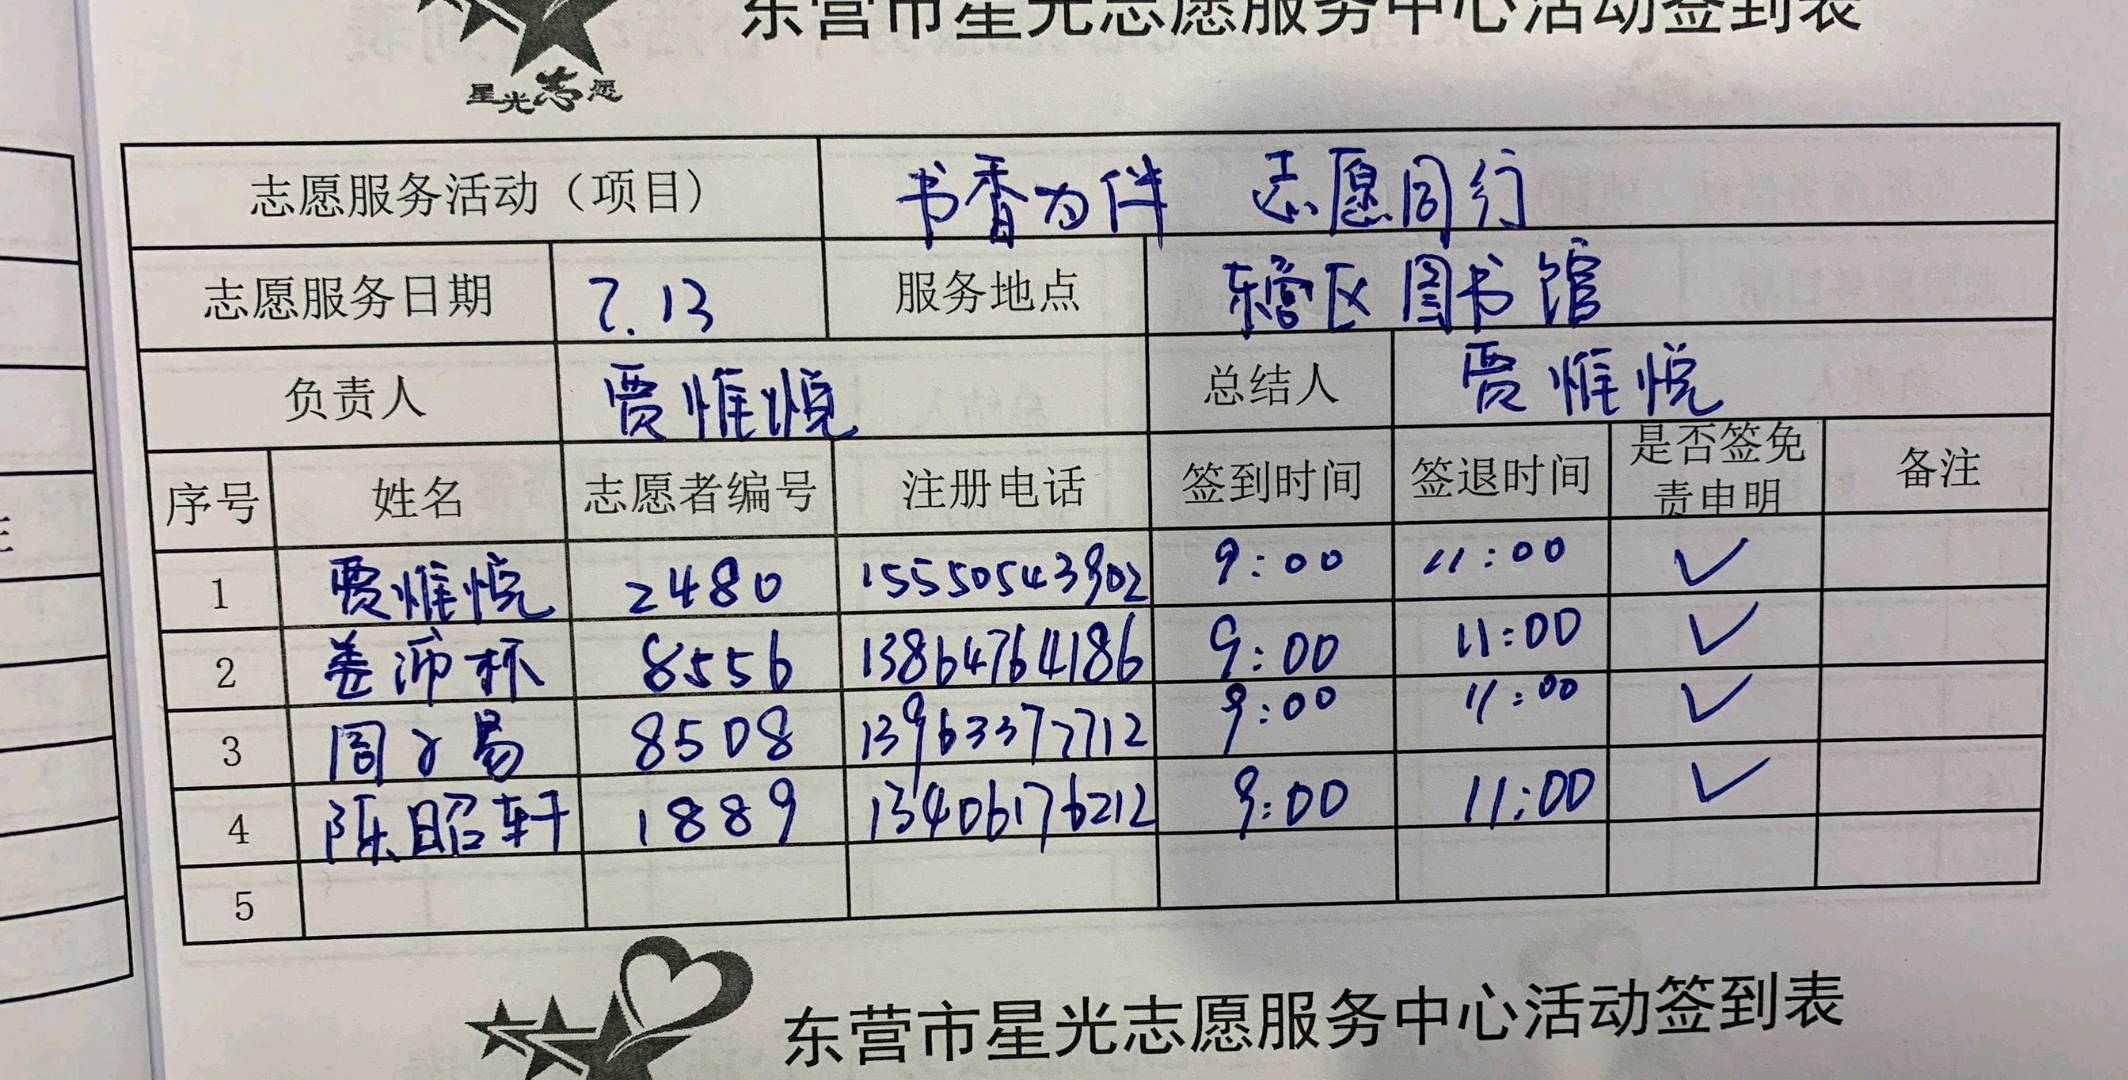 东营市星光志愿服务中心活动签到表
星光志愿
志愿服务活动（项目） 书香为伴 志愿同行
志愿服务日期 7.13 服务地点 东营区图书馆
负责人 贾惟悦 总结人 贾惟悦
序号 姓名 志愿者编号 注册电话 签到时间 签退时间 是否签免责申明 备注
1 贾惟悦 2480 15550543902 9:00 11:00 ✓
2 8556 13864764186 9:00 11:00 ✓
3 8508 13963377712 9:00 11:00 ✓
4 陈昭轩 1889 13406176212 9:00 11:00 ✓
5
东营市星光志愿服务中心活动签到表